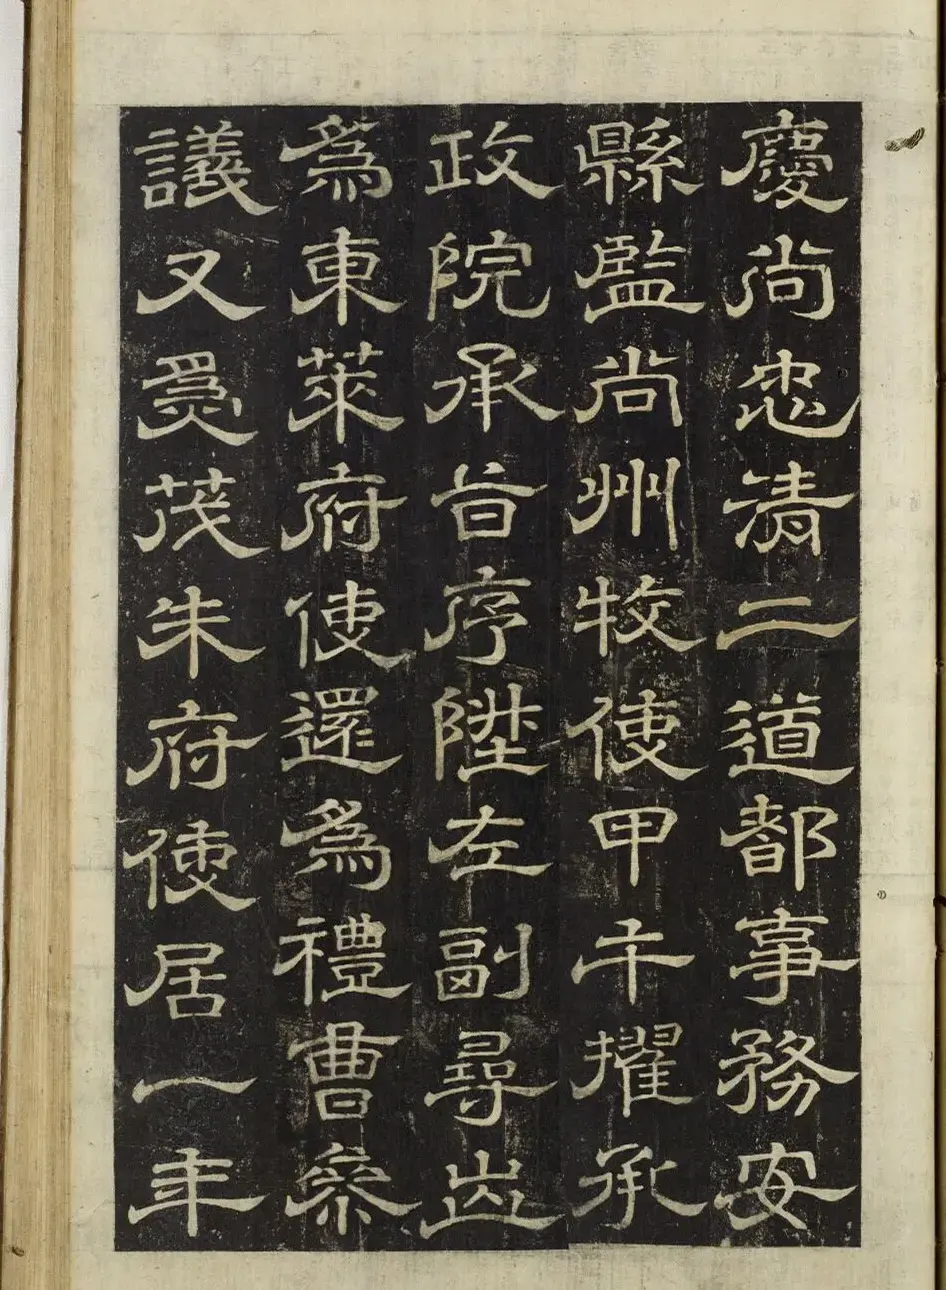 慶尚忠清二道都事務安
縣監尚州牧使甲午擢承
政院承旨序陞左副尋出
爲東萊府使還爲禮曹參
議又爲茂朱府使居一年